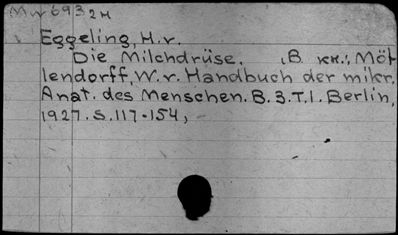 Mw 693 2н
Eggeling, H.v.
Die Milchdrüse. (В кн.: Möl
lendorff, W.v. Handbuch der mikr.
Anat. des Menschen. B.3.T.1. Berlin,
1927. S.117-154,